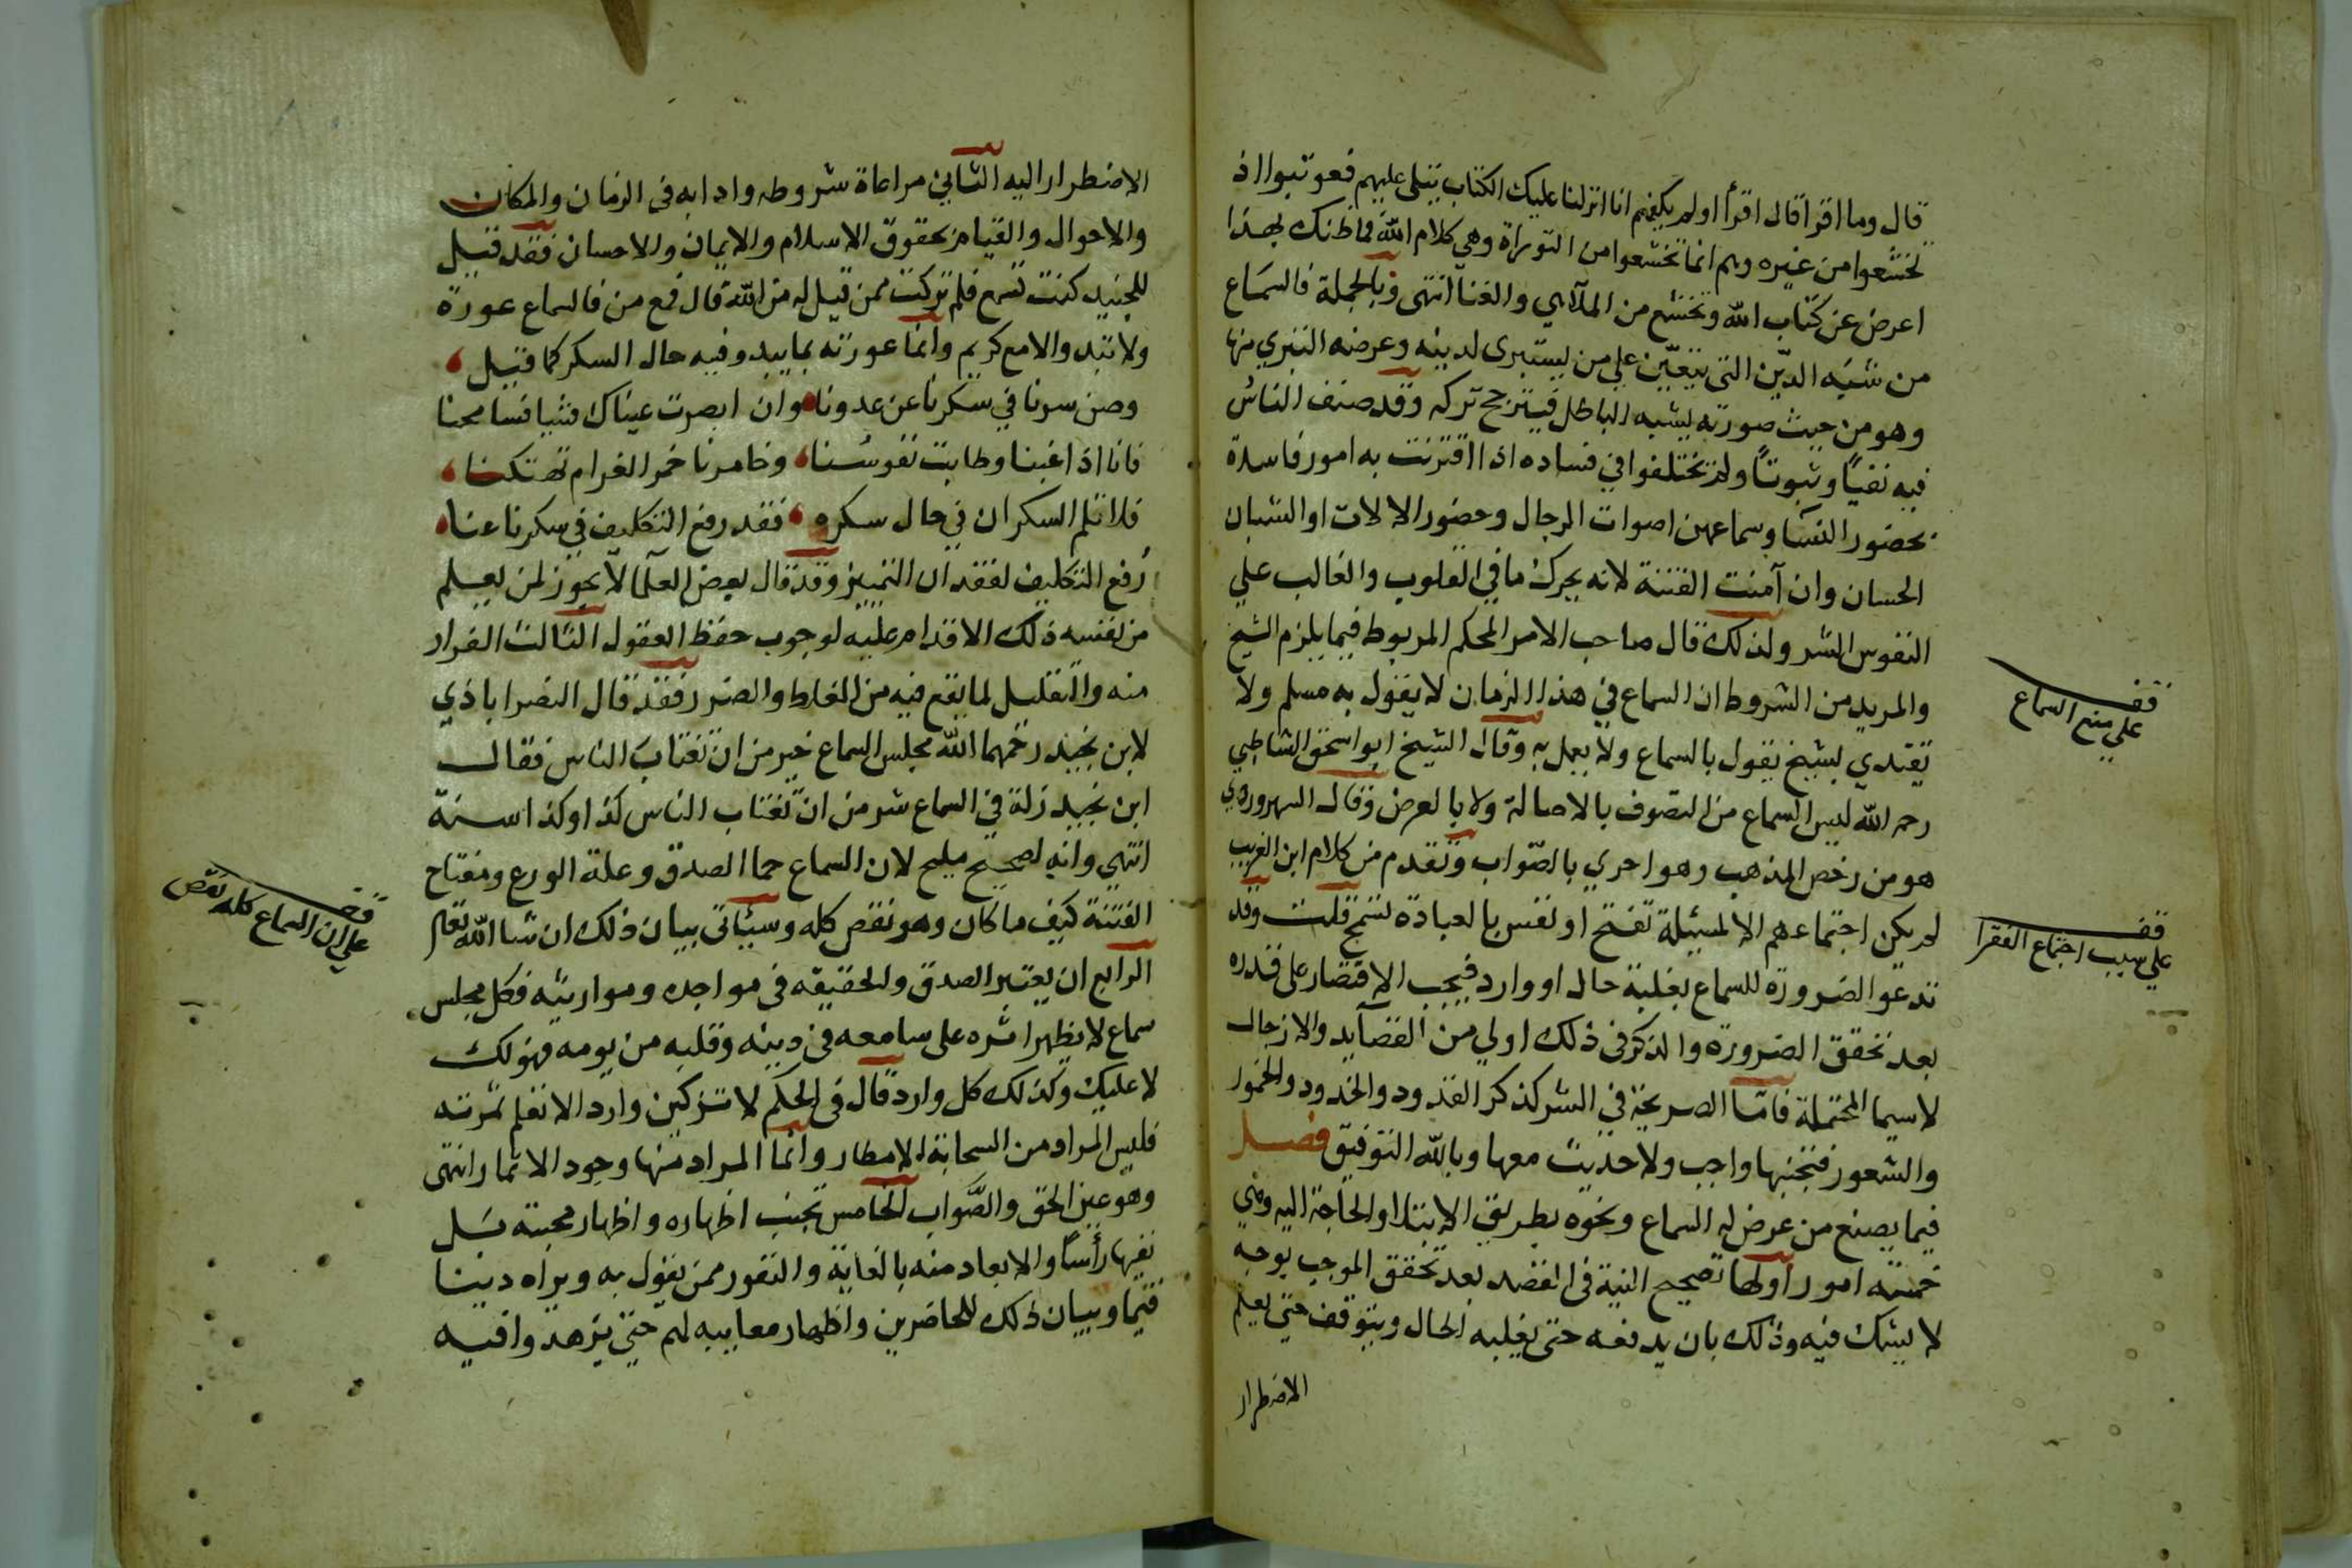 قال وما اقرا قال اقرأ اولم يكفهم انا انزلنا عليك الكتاب يتلى عليهم فعوتبوا اذ
تخشعوا من غيره وهم انما تخشعوا من التوراة وهي كلام الله فما ظنك بهذا
اعرض عن كتاب الله وتخشع من الملاهي والغنا انتهى وبالجملة فالسماع
من شبه الدين التي يتعين على من يستبرى لدينه وعرضه التبري منها
وهو من حيث صورته يشبه الباطل فيترجح تركه وقد صنف الناس
فيه نفيًا وثبوتًا ولم يختلفوا في فساده اذا اقترنت به امور فاسدة
بحضور النسا وسماعهن اصوات الرجال وحضور الالات او الشبان
الحسان وان آمنت الفتنة لانه يحرك ما في القلوب والغالب علي
النفوس الشر ولذلك قال صاحب الامر المحكم المربوط فيما يلزم الشيخ
والمريد من الشروط ان السماع في هذا الزمان لا يقول به مسلم ولا
يقتدي بشيخ يقول بالسماع ولا يعمل به وقال الشيخ ابو اسحق الشاطبي
رحمه الله ليس السماع من التصوف بالاصالة ولا بالعرض وقال السهروردي
هو من رخص المذهب وهو احري بالصواب وتقدم من كلام ابن العريب
لم يكن اجتماعهم الا لمسئلة تفتح او نفس بالعبادة تسمح قلت وقد
تدعو الضرورة للسماع بغلبة حال او وارد فيجب الاقتصار على قدره
بعد تحقق الضرورة والذكر في ذلك اولي من القصآيد والازجال
لاسيما المحتملة فامّا الصريحة في الشر كذكر القدود والخدود والخمور
والشعور فتجنبها واجب ولا حديث معها وبالله التوفيق فصل
فيما يصنع من عرض له السماع ونحوه بطريق الابتلا او الحاجة اليه وهي
خمسة امور اولها تصحيح النية في القصد بعد تحقق الموجب بوجه
لا يشك فيه وذلك بان يدفعه حتى يغلبه الحال ويتوقف حتى يعلم
الاضطرار
قف
على منع السماع
قف
على سبب اجتماع الفقرا
الاضطرار اليه الثاني مراعاة شروطه وادابه في الزمان والمكان
والاحوال والقيام بحقوق الاسلام والايمان والاحسان فقد قيل
للجنيد كنت تسمع فلم تركت ممن قيل له من الله قال فمع من فالسماع عورة
ولا تبد والا مع كريم وانما عورته بما يبد وفيه حال السكر كما قيل
وصن سرنا في سكرنا عن عدونا وان ابصرت عيناك شيا فسامحنا
فانا اذا غبنا وطابت نفوسنا وخامرنا خمر الغرام تهتكنا
فلا تلم السكران في حال سكره فقد رفع التكليف في سكرنا عنا
رُفع التكليف لفقدان التمييز وقد قال بعض العلما لا يجوز لمن يعلم
من نفسه ذلك الاقدام عليه لوجوب حفظ العقول الثالث الفرار
منه والتقليل لما يقع فيه من الغلط والضرر فقد قال النصراباذي
لابن نجيد رحمهما الله مجلس السماع خير من ان تغتاب الناس فقال
ابن نجيد زلة في السماع شر من ان تغتاب الناس كذا وكذا سنة
انتهي وانه لصحيح مليح لان السماع حما الصدق وعلة الورع ومفتاح
الفتنة كيف ما كان وهو نقص كله وسيأتى بيان ذلك ان شا الله تعالى
الرابع ان يعتبر الصدق والحقيقه في مواجده ومواريثه فكل مجلس
سماع لا يظهر اثره على سامعه في دينه وقلبه من يومه فهو لك
لا عليك وكذلك كل وارد قال في الحكم لا تزكين وارد الا تعلم ثمرته
فليس المراد من السحابة الامطار وانما المراد منها وجود الاثمار انتهى
وهو عين الحق والصواب الخامس تجنب اظهاره واظهار محبته بَل
نفيها رأسًا والابعاد منه بالغاية والنفور ممن يقول به ويراه دينا
قيما وبيان ذلك للحاضرين واظهار معايبه لهم حتى يزهدوا فيه
قف
على ان السماع كله نقص